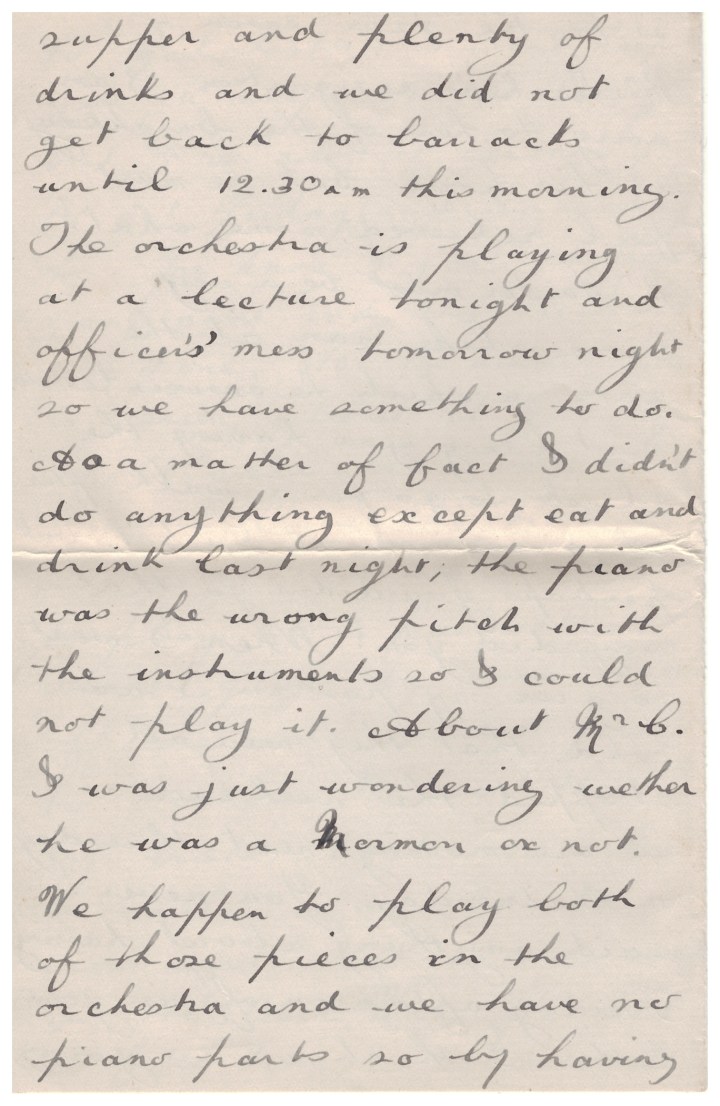 supper and plenty of
drinks and we did not
get back to barracks
until 12.30am this morning.
The orchestra is playing
at a lecture tonight and
officer's' mess tomorrow night
so we have something to do.
As a matter of fact I didn't
do anything except eat and
drink last night; the piano
was the wrong pitch with
the instruments so I could
not play it. About Mr C.
I was just wondering wether
he was a Mormon or not.
We happen to play both
of those pieces in the
orchestra and we have no
piano parts so by having